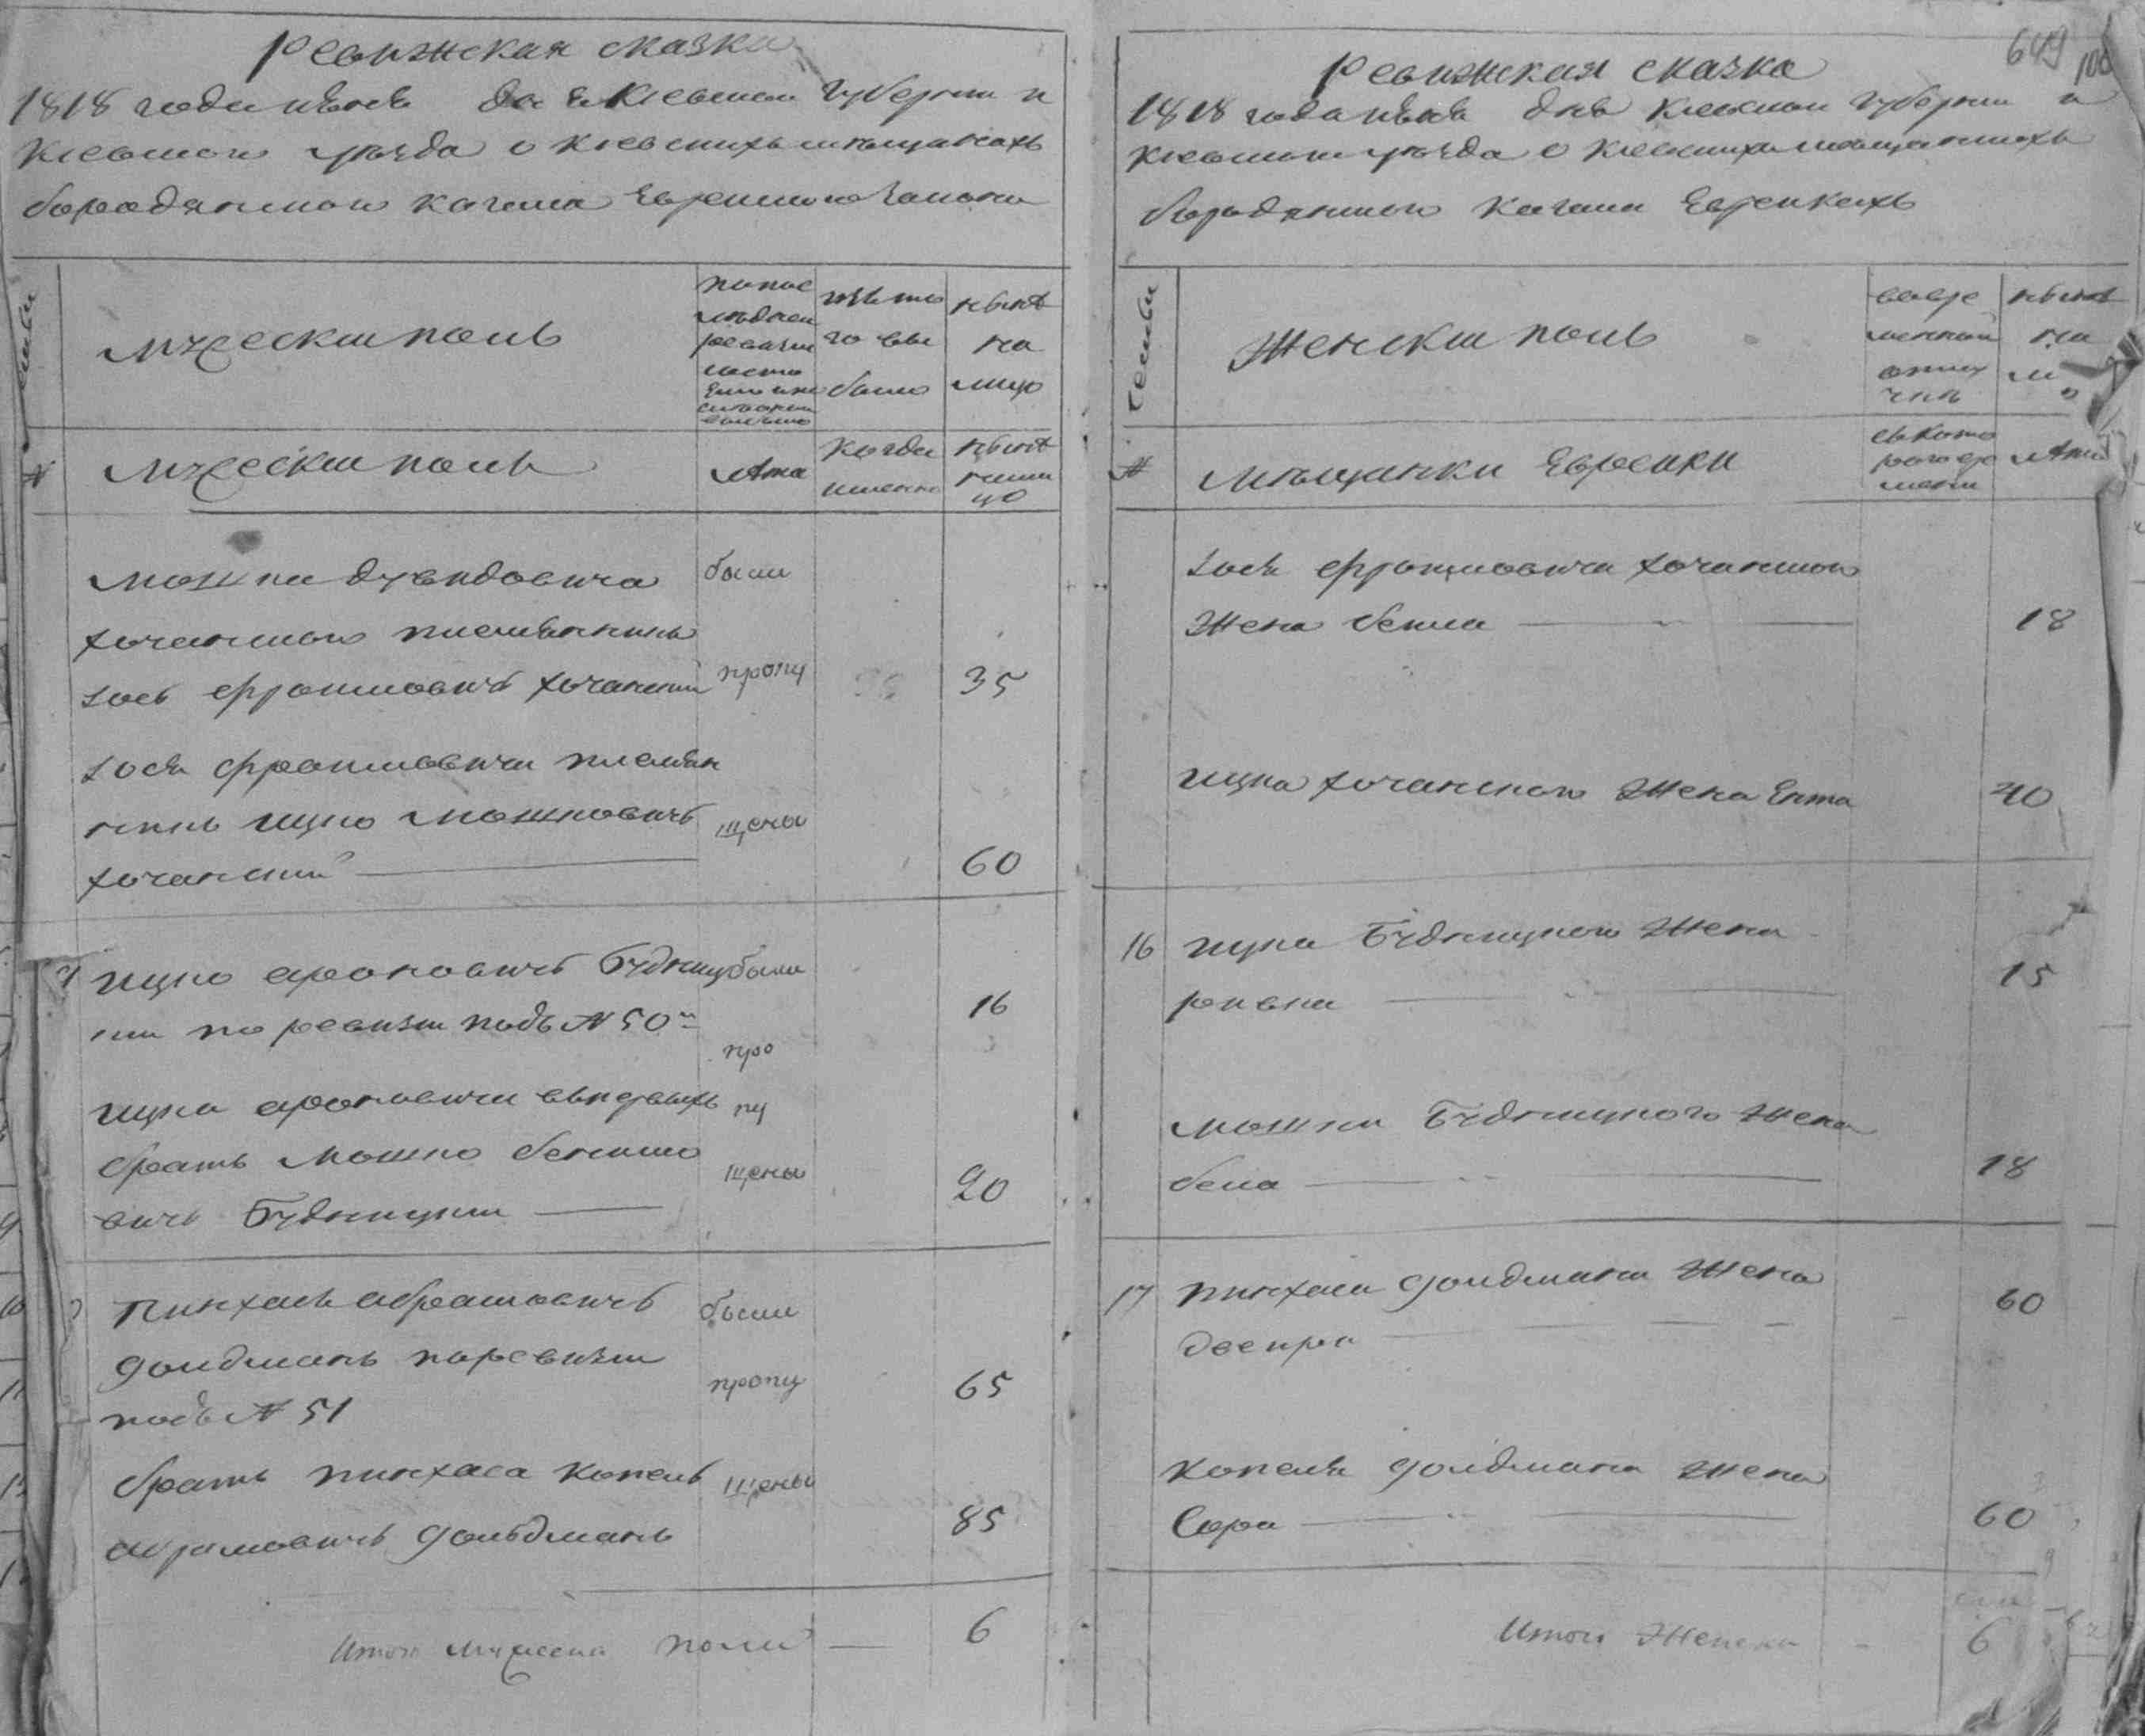 Ревижская сказка
1818 года июня дня Киевской губернии и
Киевского уезда о Киевскихъ мещанахъ
бородянского кагала Еврейского закона
семьи
Мужески полъ
по последней ревизии состояло
изъ того выбыло
ныне на лицо
№
Мужески полъ
лета
когда именно
ныне на лицо
Мошка Дувидовича
Хочанского племянникъ
Іось Фроимовичъ Хочанский
были
пропу
35
Іося Фроимовича племян
никъ Ицко Мошковичъ
Хочанский
щены
60
Ицко Ароновичъ Будниц
кии по ревизии подъ № 50м
были
16
Ицка Ароновича
братъ Мошко Беньямо
вичъ Будницкии
про
пу
щены
20
Пинхасъ Абрамовичъ
Голдманъ по ревизии
подъ № 51
были
пропу
65
братъ Пинхаса Копель
Абрамовичъ Гольдманъ
щены
85
Итого мужеска пола — 6
649
Ревижская сказка
1818 года июня дня Киевской губернии и
Киевского уезда о Киевскихъ мещанкахъ
бородянского кагала Еврейкахъ
Семьи
Женски полъ
во временной отлучке
ныне на лицо
№
Мещанки Еврейки
съ которого времени
лета
Іося Фроимовича Хочанского
Жена Бейла
18
Ицка Хочанского Жена Ента
40
16 Ицка Будницкого Жена
Ривка
15
Мошка Будницкого Жена
Бела
18
17 Пинхаса Голдмана Жена
Двейра
60
Копеля Голдмана Жена
Сора
60
Итого Женска
6